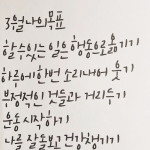 3월 나의 목표
할 수 있는 일은 행동으로 옮기기
하루에 한번 소리내어 웃기
부정적인 것들과 거리두기
운동 시작하기
나를 잘 돌보고 건강챙기기